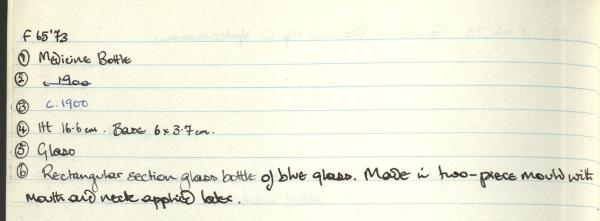 F 65'73
① Medicine Bottle
② c.1900
③ c.1900
④ Ht 16.6cm. Base 6 x 3.7cm.
⑤ Glass
⑥ Rectangular section glass bottle of blue glass. Made in two-piece mould with
mouth and neck applied later.